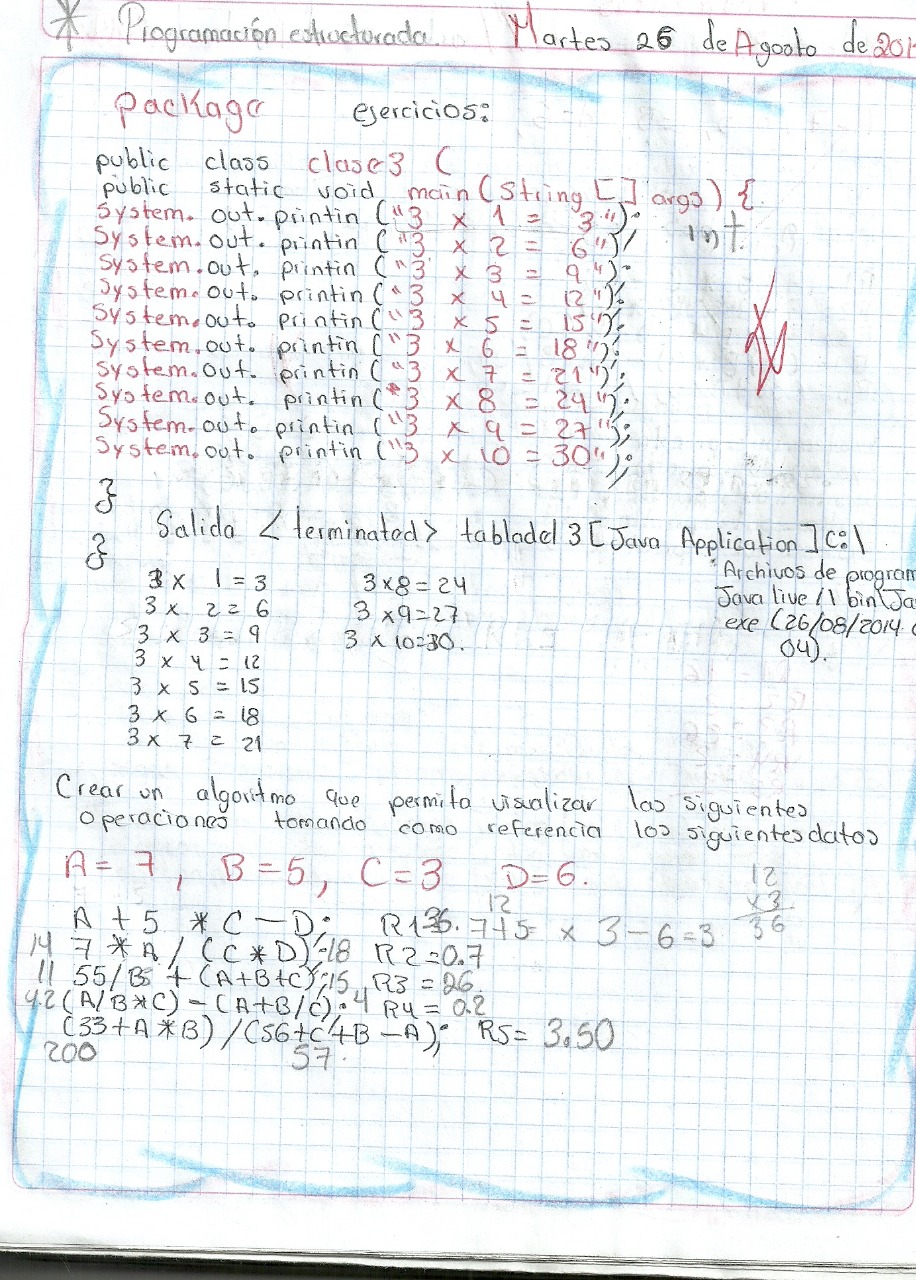 * Programación estructurada. Martes 26 de Agosto de 201
package ejercicios:
public class clase3 (
public static void main (String [] args) {
System. out. printin ("3 x 1 = 3");
int.
System. out. printin ("3 x 2 = 6");
System. out. printin ("3 x 3 = 9");
System. out. printin ("3 x 4 = 12");
System. out. printin ("3 x 5 = 15");
System. out. printin ("3 x 6 = 18");
System. out. printin ("3 x 7 = 21");
System. out. printin ("3 x 8 = 24");
System. out. printin ("3 x 9 = 27");
System. out. printin ("3 x 10 = 30");
}
Salida <terminated> tabladel 3 [Java Application] C:\
}
Archivos de program
Java live /1 bin\Ja
exe (26/08/2014
04).
3 x 1 = 3
3 x 2 = 6
3 x 3 = 9
3 x 4 = 12
3 x 5 = 15
3 x 6 = 18
3 x 7 = 21
3x8 = 24
3 x9=27
3 x10=30.
Crear un algoritmo que permita visualizar las siguientes
operaciones tomando como referencia los siguientes datos
A = 7, B = 5, C = 3 D = 6.
12
x3
36
12
A + 5 * C - D; R1 36. 7+5= x 3 - 6 = 3
14 7 * A / (C * D); 18 R2 = 0.7
11 55/B + (A+B+C); 15, R3 = 26.
4.2 (A/B*C) - (A+B/C); 4 R4 = 0.2
(33+A*B) / (56+C+B-A); R5 = 3.50
200 57.